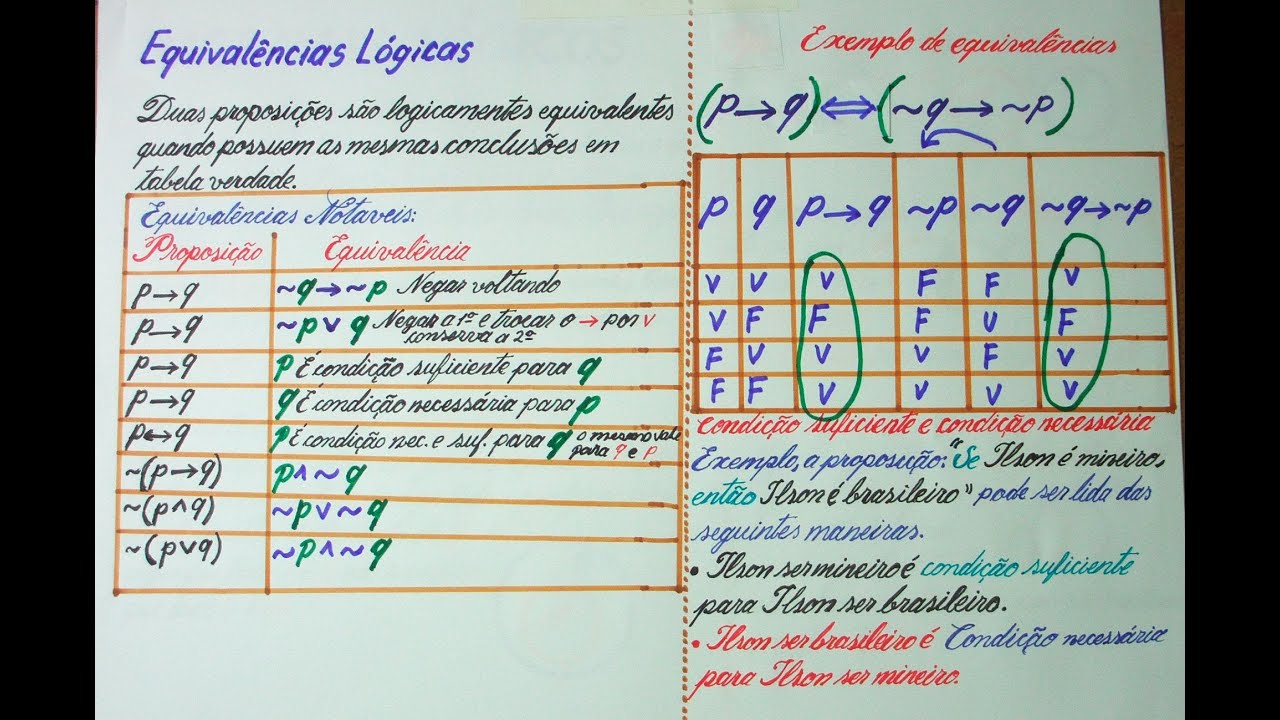 Equivalências Lógicas
Duas proposições são logicamentes equivalentes
quando possuem as mesmas conclusões em
tabela verdade.
Equivalências Notaveis:
Proposição Equivalência
p→q ~q→~p Negar voltando
p→q ~p∨q Negar a 1ª e trocar o → por v
conserva a 2ª
p→q p É condição suficiente para q
p→q q É condição necessária para p
p↔q p É condição nec. e suf. para q o mesmo vale
para q e p
~(p→q) p∧~q
~(p∧q) ~p∨~q
~(p∨q) ~p∧~q
Exemplo de equivalências
(p→q)⟺(~q→~p)
p q p→q ~p ~q ~q→~p
V V V F F V
V F F F V F
F V V V F V
F F V V V V
Condição suficiente e condição necessária
Exemplo, a proposição: "Se Ilson é mineiro,
então Ilson é brasileiro" pode ser lida das
seguintes maneiras.
• Ilson ser mineiro é condição suficiente
para Ilson ser brasileiro.
• Ilson ser brasileiro é Condição necessária
para Ilson ser mineiro.